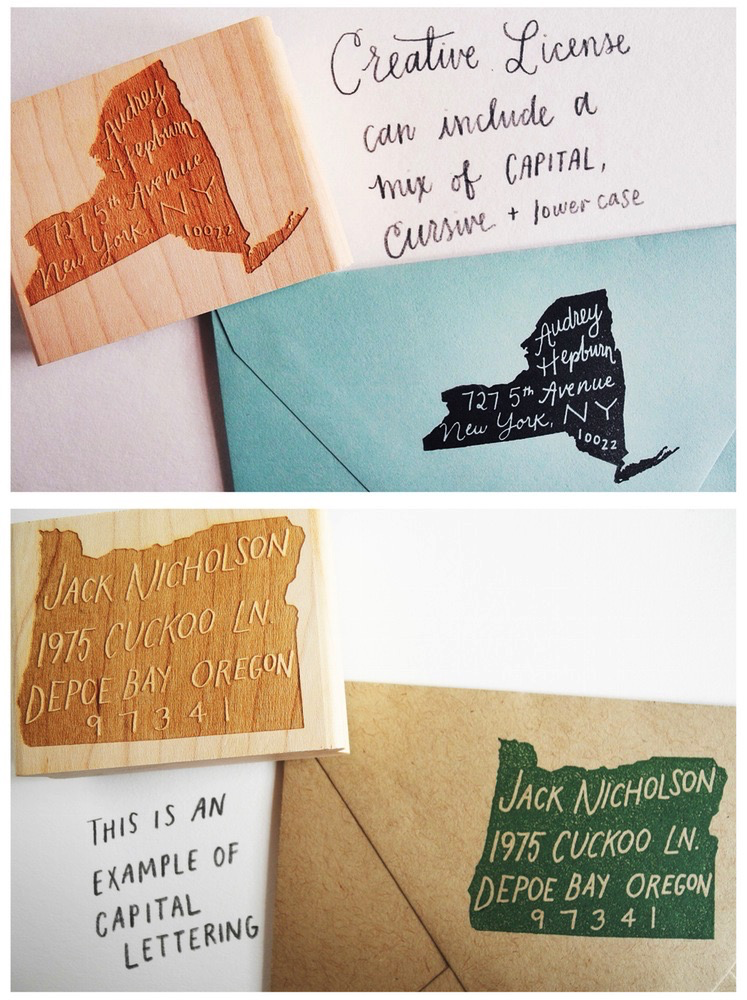 Audrey
Hepburn
727 5th Avenue
New York, NY
10022
Creative License
can include a
mix of CAPITAL,
Cursive + lower case
Audrey
Hepburn
727 5th Avenue
New York, NY
10022
JACK NICHOLSON
1975 CUCKOO LN.
DEPOE BAY OREGON
97341
THIS IS AN
EXAMPLE OF
CAPITAL
LETTERING
JACK NICHOLSON
1975 CUCKOO LN.
DEPOE BAY OREGON
97341